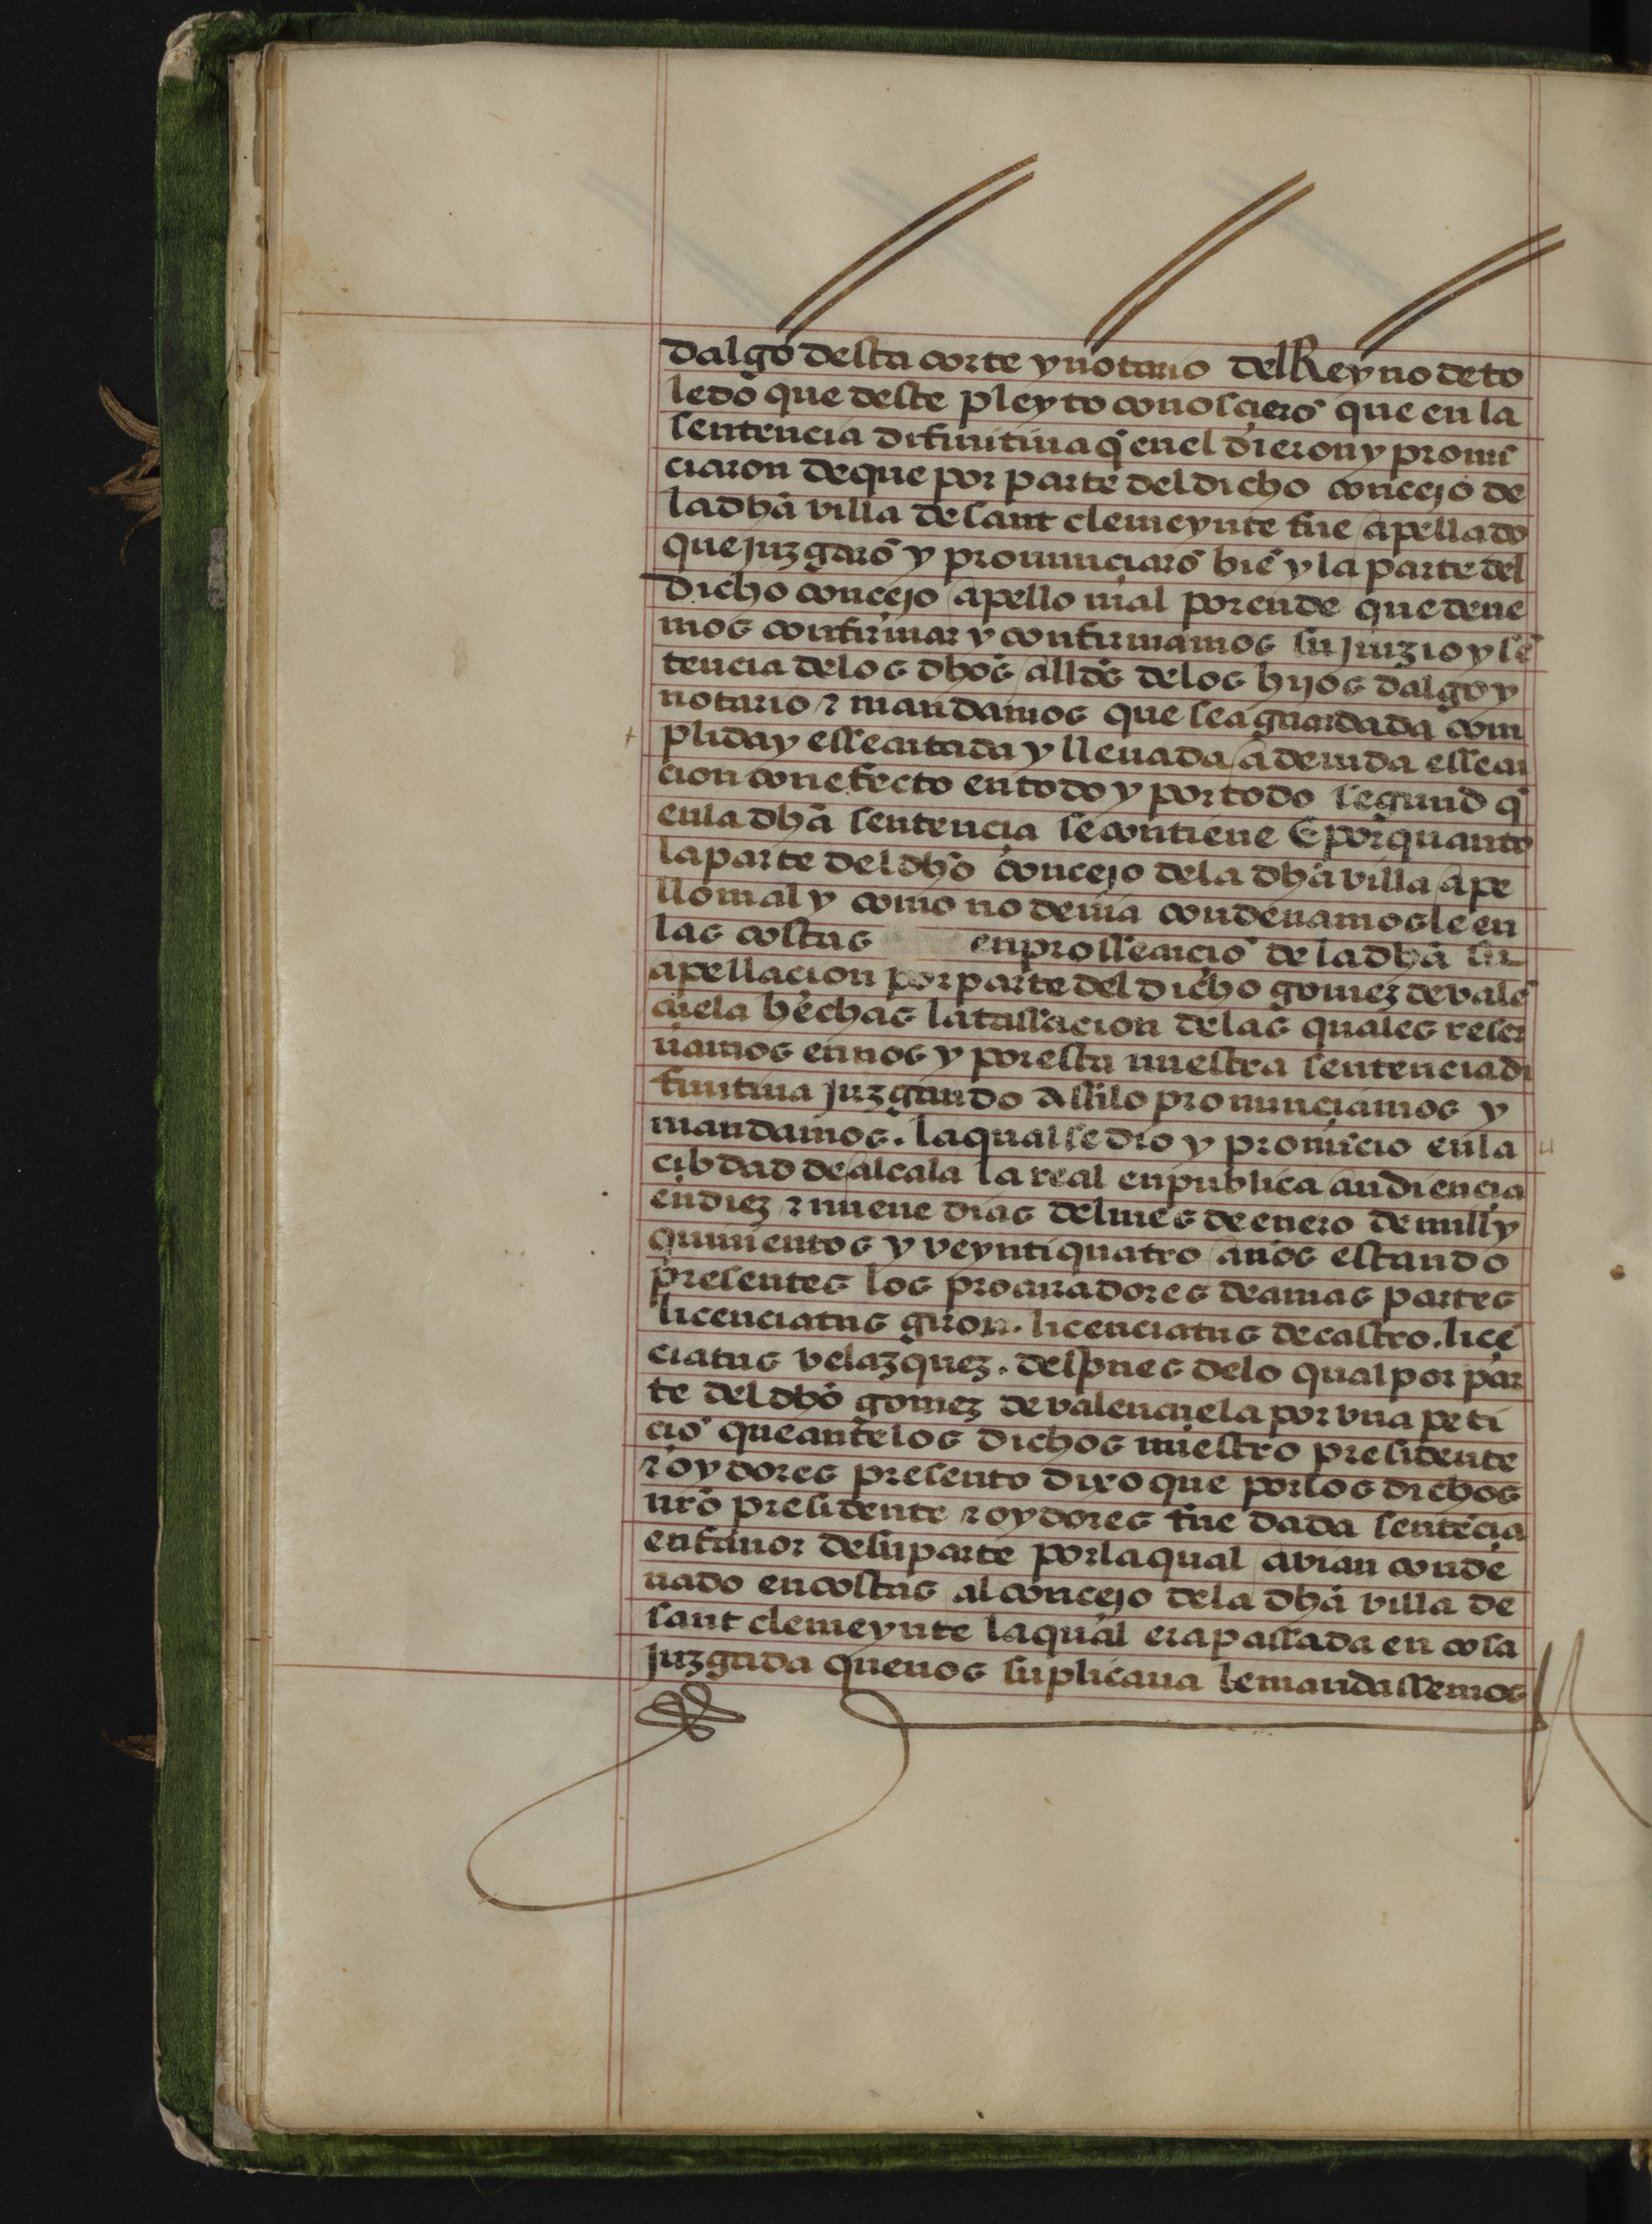 dalgo desta corte y notario del Reyno de to
ledo que deste pleyto conosçierō que en la
sentencia difinitiua q̄ en el dieron y pronū
ciaron de que por parte del dicho concejo de
la dhā villa de sant clemeynte fue apellado
que juzgarō y pronunciarō biē y la parte del
dicho concejo apello mal por ende que deue
mos confirmar y confirmamos su juizio y sē
tencia de los dhōs allds̄ de los hijos dalgo y
notario ⁊ mandamos que sea guardada com
plida y essecutada y lleuada a deuida essecu
cion con efecto en todo y por todo segund q̄
en la dhā sentencia se contiene E por quanto
la parte del dhō concejo de la dhā villa ape
llo mal y como no deuia condenamosle en
las costas en prossecuciō de la dhā su
apellacion por parte del dicho gomez de valē
çuela hechas la tassacion de las quales reser
uamos en nos y por esta nuestra sentencia di
finitiua juzgando assi lo pronunciamos y
mandamos. la qual se dio y pronūcio en la
cibdad de alcala la real en publica audiencia
en diez ⁊ nueue dias del mes de enero de mill y
quinientos y veynti quatro años estando
presentes los procuradores de amas partes
licenciatus giron. licenciatus de castro. licē
ciatus velazquez. despues de lo qual por par
te del dhō gomez de valençuela por vna peti
ciō que ante los dichos nuestro presidente
⁊ oydores presento dixo que por los dichos
nrō presidente ⁊ oydores fue dada sentēcia
en fauor de su parte por la qual avian conde
nado en costas al concejo de la dhā villa de
sant clemeynte la qual era passada en cosa
juzgada que nos suplicaua le mandassemos